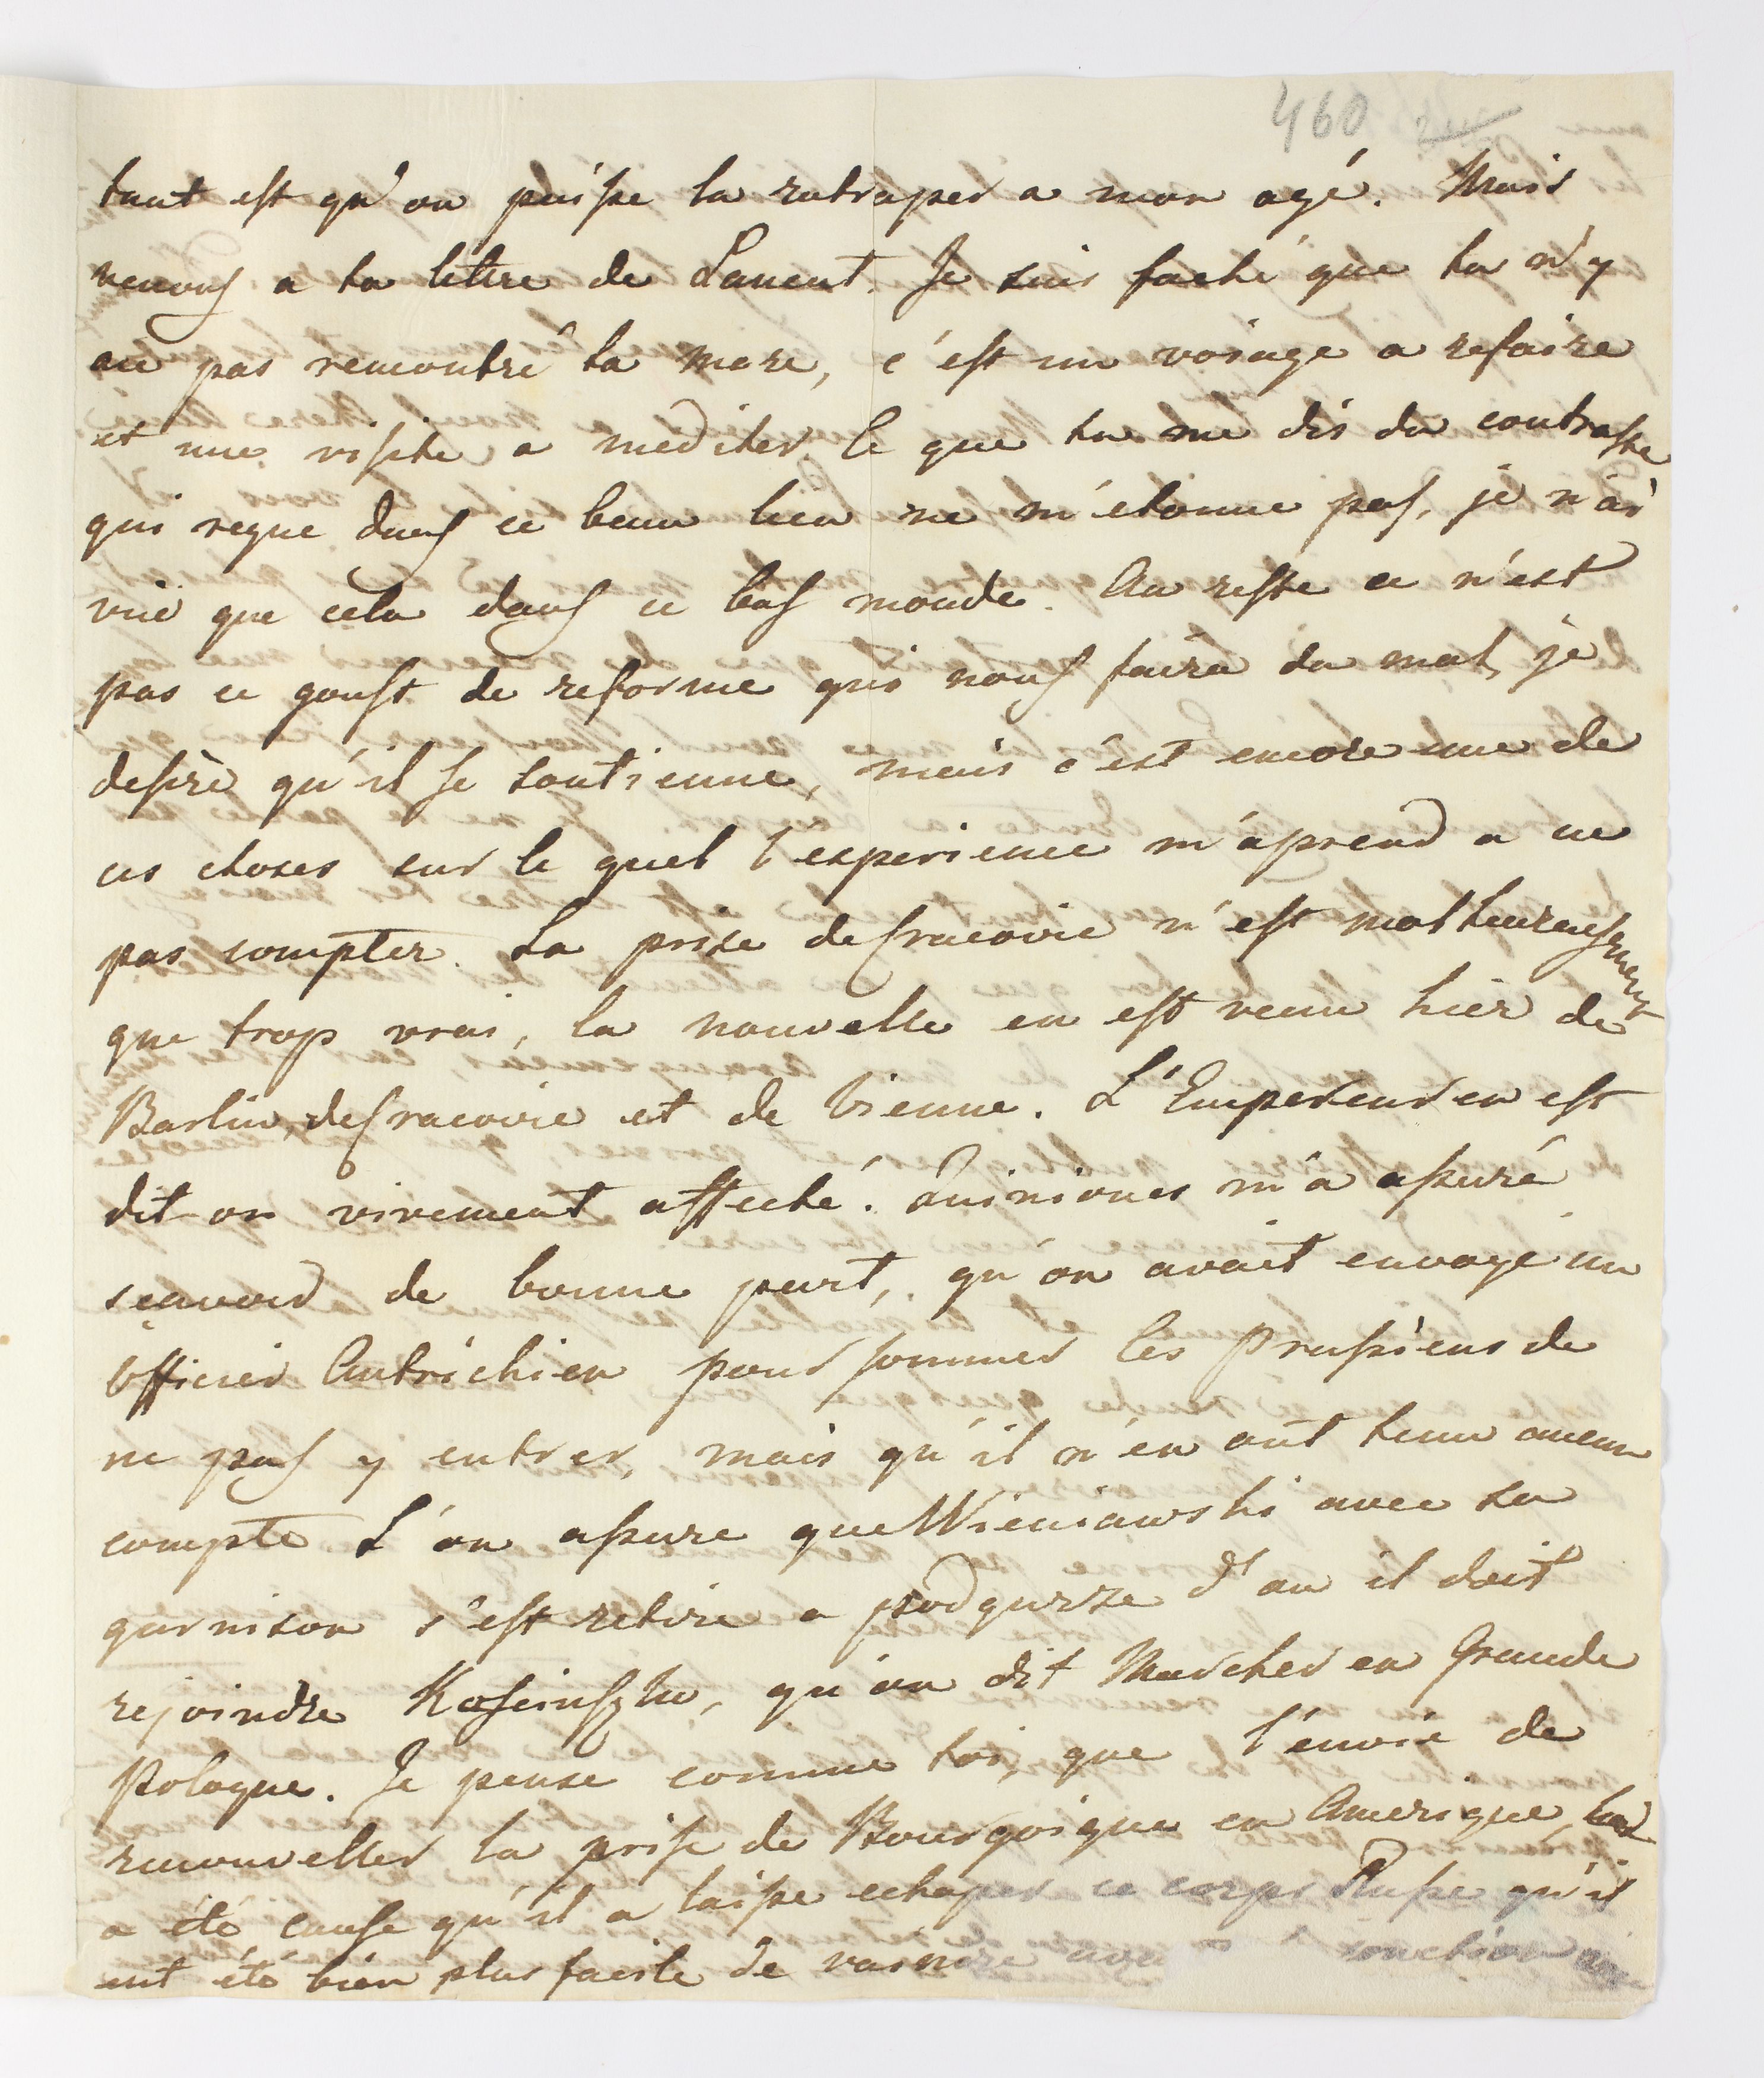 460
tant est qu'on puisse la ratraper a mon agé. Mais
venons a ta lettre de Lancut. Je suis faché que tu n'y
aie pas rencontré ta mere, c'est un voiage a refaire
et une visite a mediter. Ce que tu me dis du contraste
qui regne dans ce beau lieu ne m'etonne pas, je n'ai
vuë que cela dans ce bas monde. Au reste ce n'est
pas ce goust de reforme qui nous faira du mal, je
desire qu'il se soutienne, mais c'est encore une de
ces choses sur le quel l'experience m'aprend a ne
pas compter. La prise de Cracovie n'est malheureusement
que trop vrai, la nouvelle en est venu hier de
Barlin, de Cracovie et de Vienne. L'Empereur en est
dit on vivement affecté. m'a assuré
sçavoir de bonne part, qu'on avait envoyé un
officier Autrichien pour sommer les Prussiens de
ne pas y entrer, mais qu'il n'en ont tenu aucun
compte L'on assure que Wieniawski avec sa
garnison s'est retire a podgurze d'ou il doit
rejoindre Kosciuszko, qu'on dit Marcher en Grande
Pologne. Je pense comme toi, que l'envie de
renouveller la prise de Bourgoigne en Amerique,
a été cause qu'il a laisse echaper ce corps Russe qu'il
eut été bien plus facile de vaincre jonction